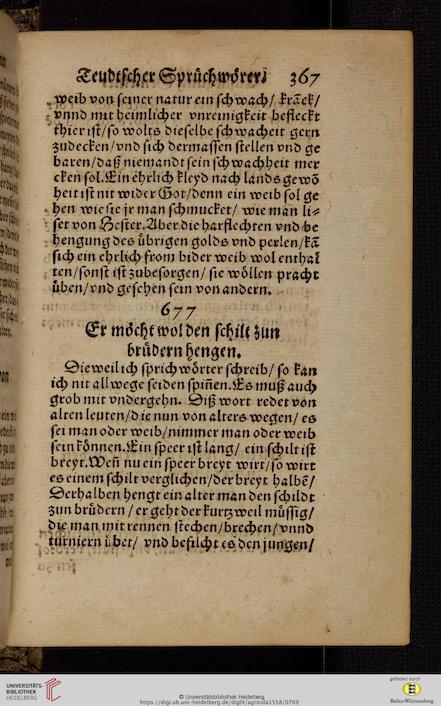 Teudtscher Sprüchwörter. 367
weib von seiner natur ein schwach/ kräck/
vnnd mit heimlicher vnreinigkeit befleckt
thier ist/ so wolts dieselbe schwacheit gern
zudecken/ vnd sich dermassen stellen vnd ge
baren/ daß niemandt sein schwachheit mer
cken sol. Ein ehrlich kleyd nach lands gewõ
heit ist nit wider Got/ denn ein weib sol ge
hen wie sie jr man schmucket/ wie man li=
set von Hester. Aber die harflechten vnd be
hengung des übrigen golds vnd perlen/ kã
sich ein ehrlich from bider weib wol enthal
ten/ sonst ist zubesorgen/ sie wöllen pracht
üben/ vnd gesehen sein von andern.
677
Er möcht wol den schilt zun
brüdern hengen.
Die weil ich sprichwörter schreib/ so kan
ich nit allwege seiden spiñen. Es muß auch
grob mit vndergehn. Diß wort redet von
alten leuten/ die nun von alters wegen/ es
sei man oder weib/ nimmer man oder weib
sein können. Ein speer ist lang/ ein schilt ist
breyt. Weñ nu ein speer breyt wirt/ so wirt
es einem schilt verglichen/ der breyt halbẽ/
Derhalben hengt ein alter man den schildt
zun brüdern/ er geht der kurtzweil müssig/
die man mit rennen stechen/ brechen/ vnnd
turniern übet/ vnd befilcht es den jungen/
UNIVERSITÄTS-
BIBLIOTHEK
HEIDELBERG
© Universitätsbibliothek Heidelberg
https://digi.ub.uni-heidelberg.de/diglit/agricola1558/0769
gefördert durch
Baden-Württemberg